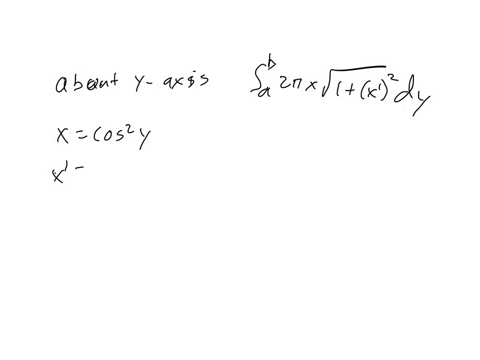 about y-axis ∫ₐᵇ 2πx√(1+(x')²) dy
x = cos²y
x' =